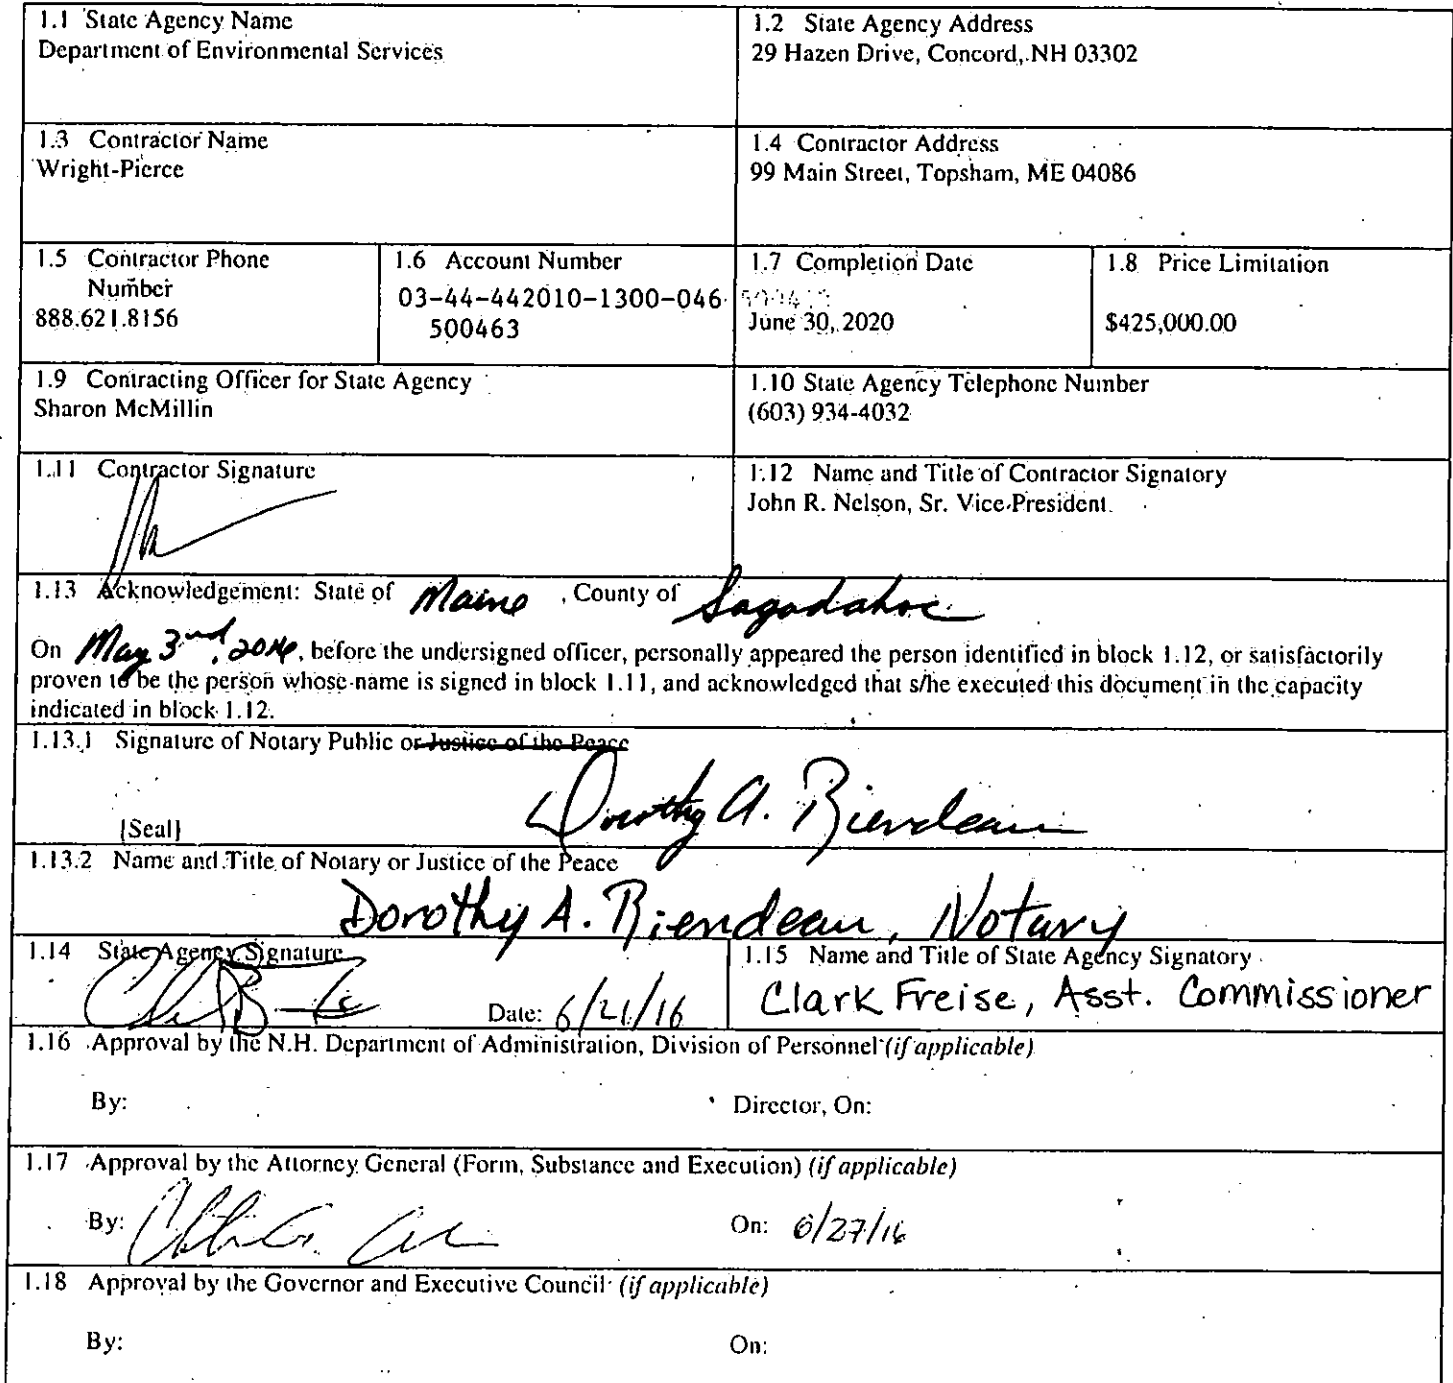 1.1 State Agency Name
Department of Environmental Services
1.2 State Agency Address
29 Hazen Drive, Concord, NH 03302
1.3 Contractor Name
Wright-Pierce
1.4 Contractor Address
99 Main Street, Topsham, ME 04086
1.5 Contractor Phone
Number
888.621.8156
1.6 Account Number
03-44-442010-1300-046-
500463
1.7 Completion Date
June 30, 2020
1.8 Price Limitation
$425,000.00
1.9 Contracting Officer for State Agency
Sharon McMillin
1.10 State Agency Telephone Number
(603) 934-4032
1.11 Contractor Signature
1.12 Name and Title of Contractor Signatory
John R. Nelson, Sr. Vice President
1.13 Acknowledgement: State of Maine , County of Sagadahoc
On May 3rd, 2016, before the undersigned officer, personally appeared the person identified in block 1.12, or satisfactorily
proven to be the person whose name is signed in block 1.11, and acknowledged that s/he executed this document in the capacity
indicated in block 1.12.
1.13.1 Signature of Notary Public or Justice of the Peace
Dorothy A. Riendeau
[Seal]
1.13.2 Name and Title of Notary or Justice of the Peace
Dorothy A. Riendeau, Notary
1.14 State Agency Signature
Date: 6/21/16
1.15 Name and Title of State Agency Signatory
Clark Freise, Asst. Commissioner
1.16 Approval by the N.H. Department of Administration, Division of Personnel (if applicable)
By: Director, On:
1.17 Approval by the Attorney General (Form, Substance and Execution) (if applicable)
By: On: 6/27/16
1.18 Approval by the Governor and Executive Council (if applicable)
By: On: